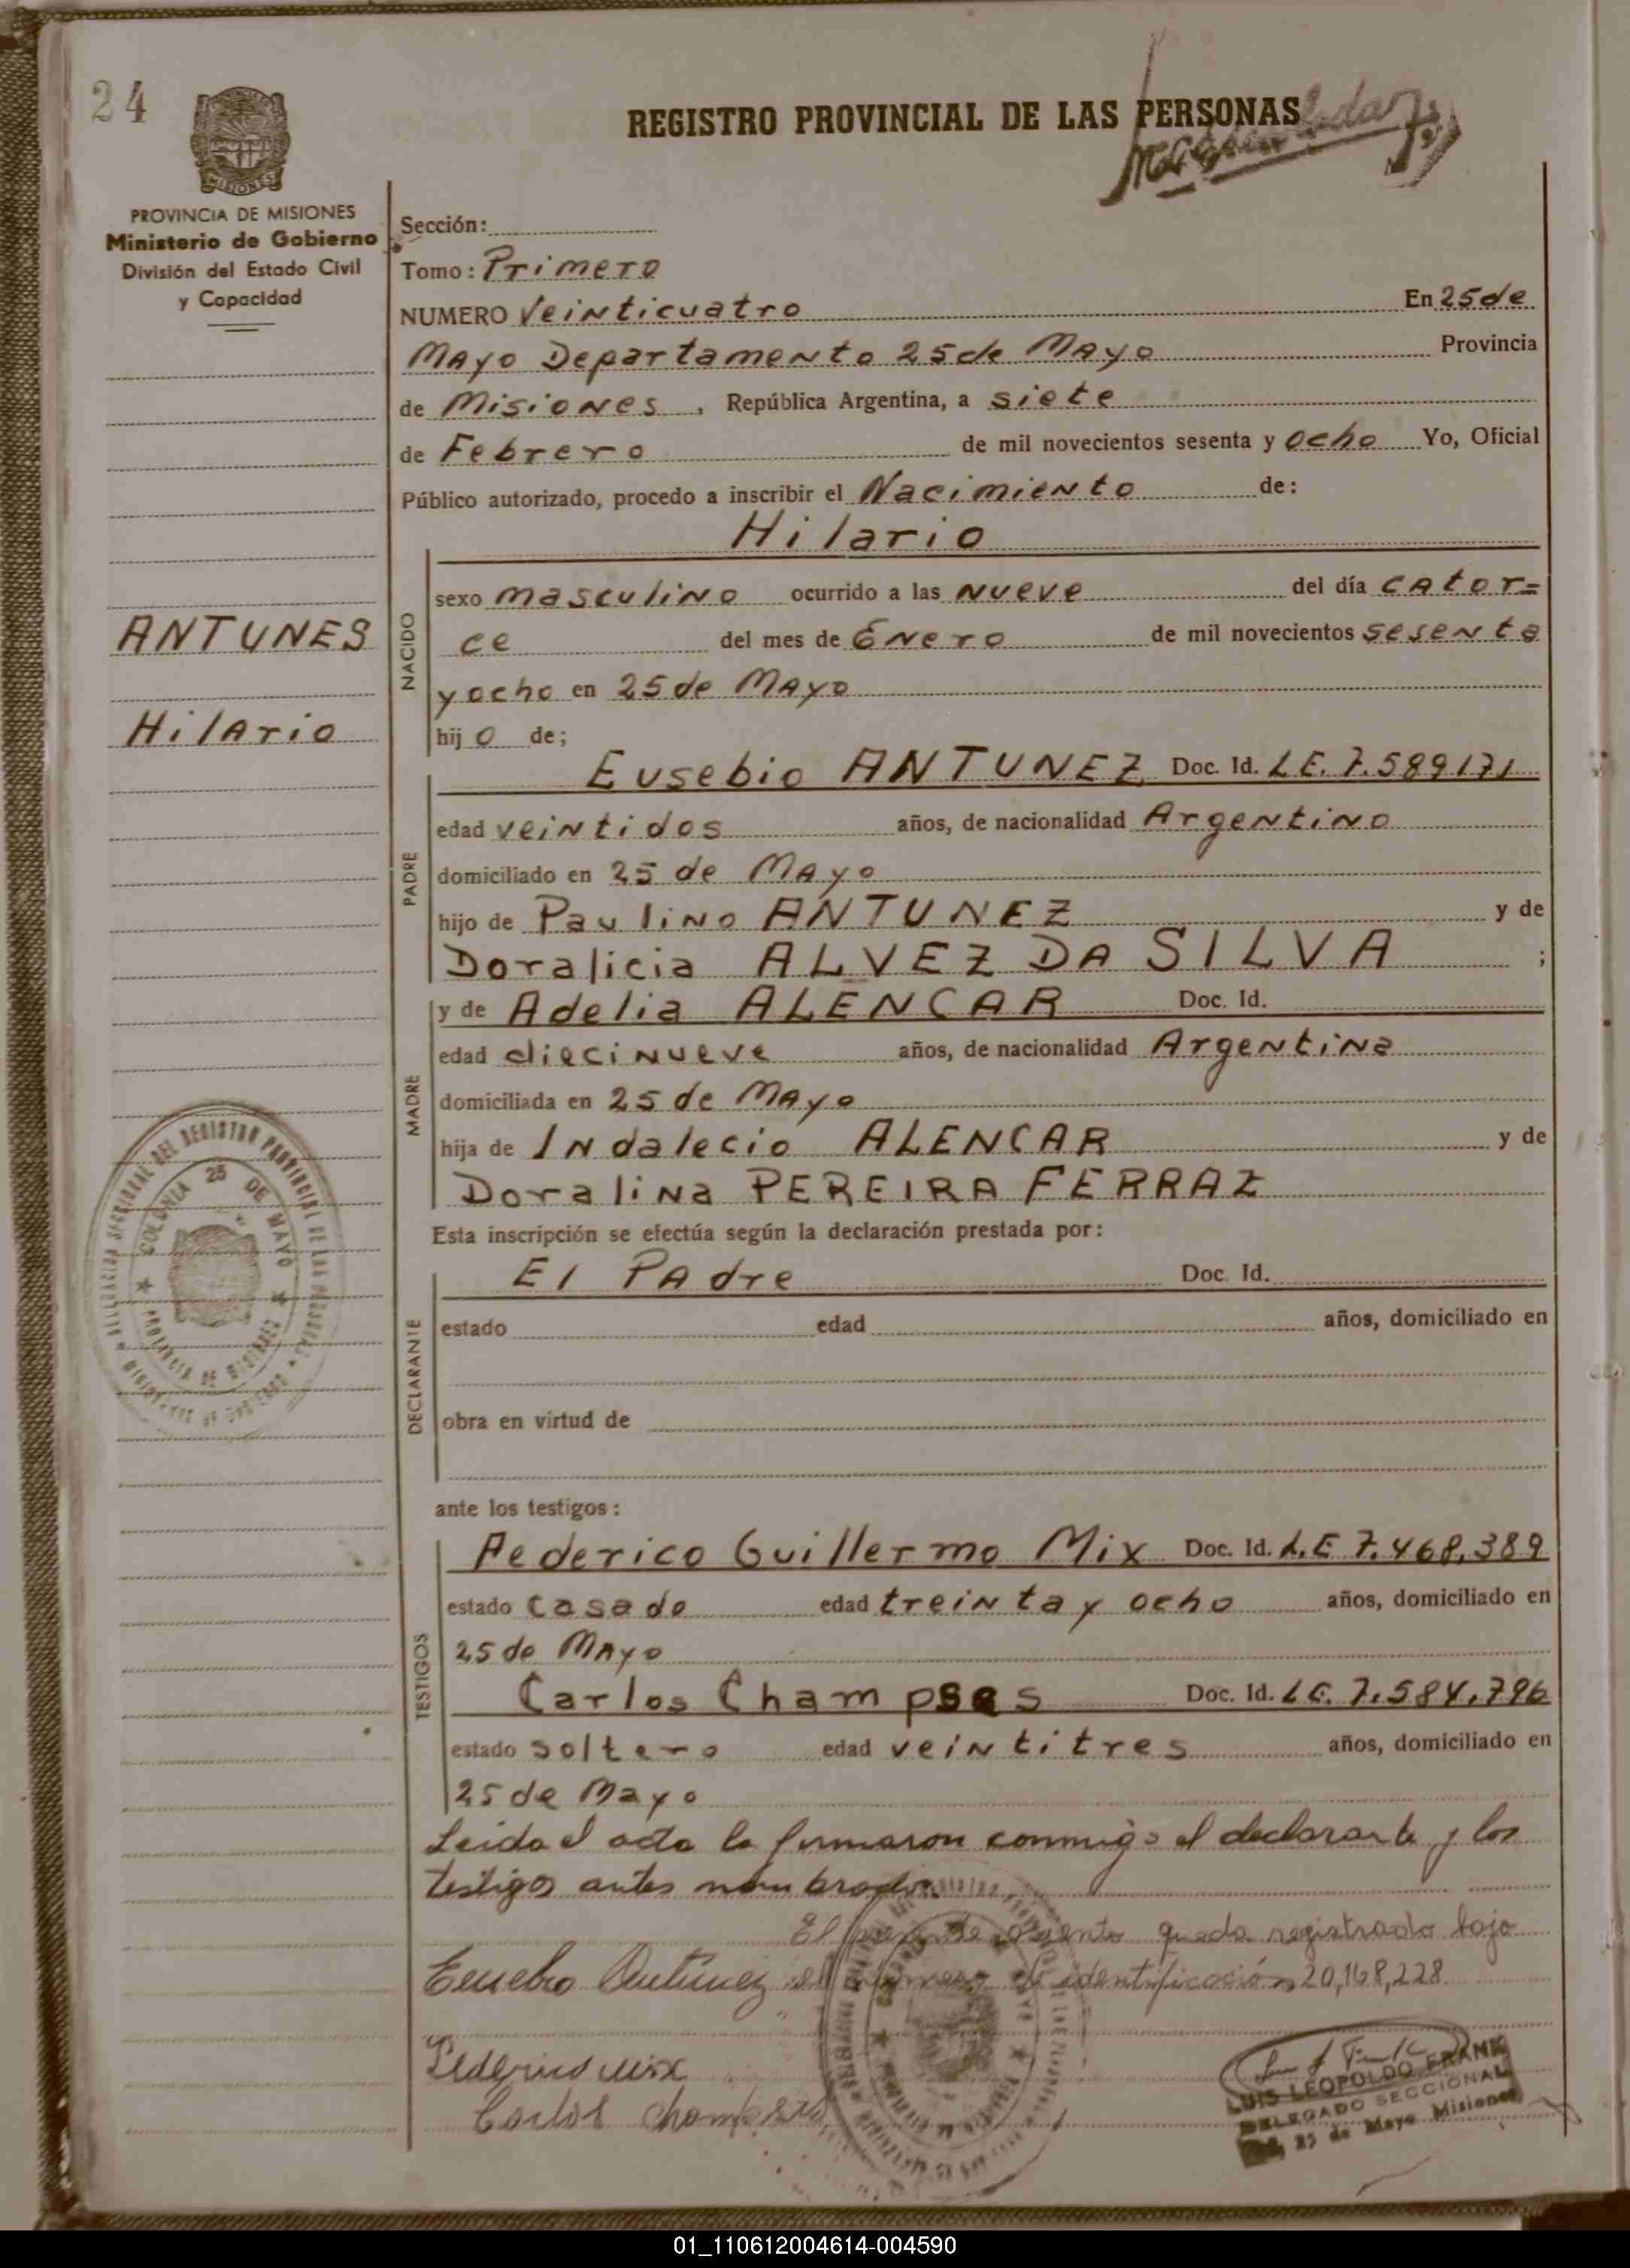 24
REGISTRO PROVINCIAL DE LAS PERSONAS
MISIONES
PROVINCIA DE MISIONES
Ministerio de Gobierno
División del Estado Civil
y Capacidad
Sección:
Tomo: Primero
NUMERO Veinticuatro En 25 de
Mayo Departamento 25 de Mayo Provincia
de Misiones, República Argentina, a siete
de Febrero de mil novecientos sesenta y ocho Yo, Oficial
Público autorizado, procedo a inscribir el Nacimiento de:
Hilario
NACIDO
sexo masculino ocurrido a las nueve del día cator=
ce del mes de Enero de mil novecientos sesenta
y ocho en 25 de Mayo
hijo de;
ANTUNES
Hilario
PADRE
Eusebio ANTUNEZ Doc. Id. LE. 7.589171
edad veintidos años, de nacionalidad Argentino
domiciliado en 25 de Mayo
hijo de Paulino ANTUNEZ y de
Doralicia ALVEZ DA SILVA ;
MADRE
y de Adelia ALENCAR Doc. Id.
edad diecinueve años, de nacionalidad Argentina
domiciliada en 25 de Mayo
hija de Indalecio ALENCAR y de
Doralina PEREIRA FERRAZ
Esta inscripción se efectúa según la declaración prestada por:
DECLARANTE
El Padre Doc. Id.
estado edad años, domiciliado en
obra en virtud de
DELEGACION SECCIONAL DEL REGISTRO PROVINCIAL DE LAS PERSONAS
COLONIA 25 DE MAYO
PROVINCIA DE MISIONES
MINISTERIO DE GOBIERNO
ante los testigos:
TESTIGOS
Federico Guillermo Mix Doc. Id. L.E 7.468,389
estado Casado edad treinta y ocho años, domiciliado en
25 de Mayo
Carlos Champses Doc. Id. LE. 7.584,796
estado soltero edad veintitres años, domiciliado en
25 de Mayo
Leida el acta la firmaron conmigo el declarante y los
testigos antes nombrados.
El presente asiento queda registrado bajo
el numero de identificación 20,168,228
Eusebio Antunez
Federico Mix
Carlos
LUIS LEOPOLDO FRANK
DELEGADO SECCIONAL
25 de Mayo Misiones
01_110612004614-004590